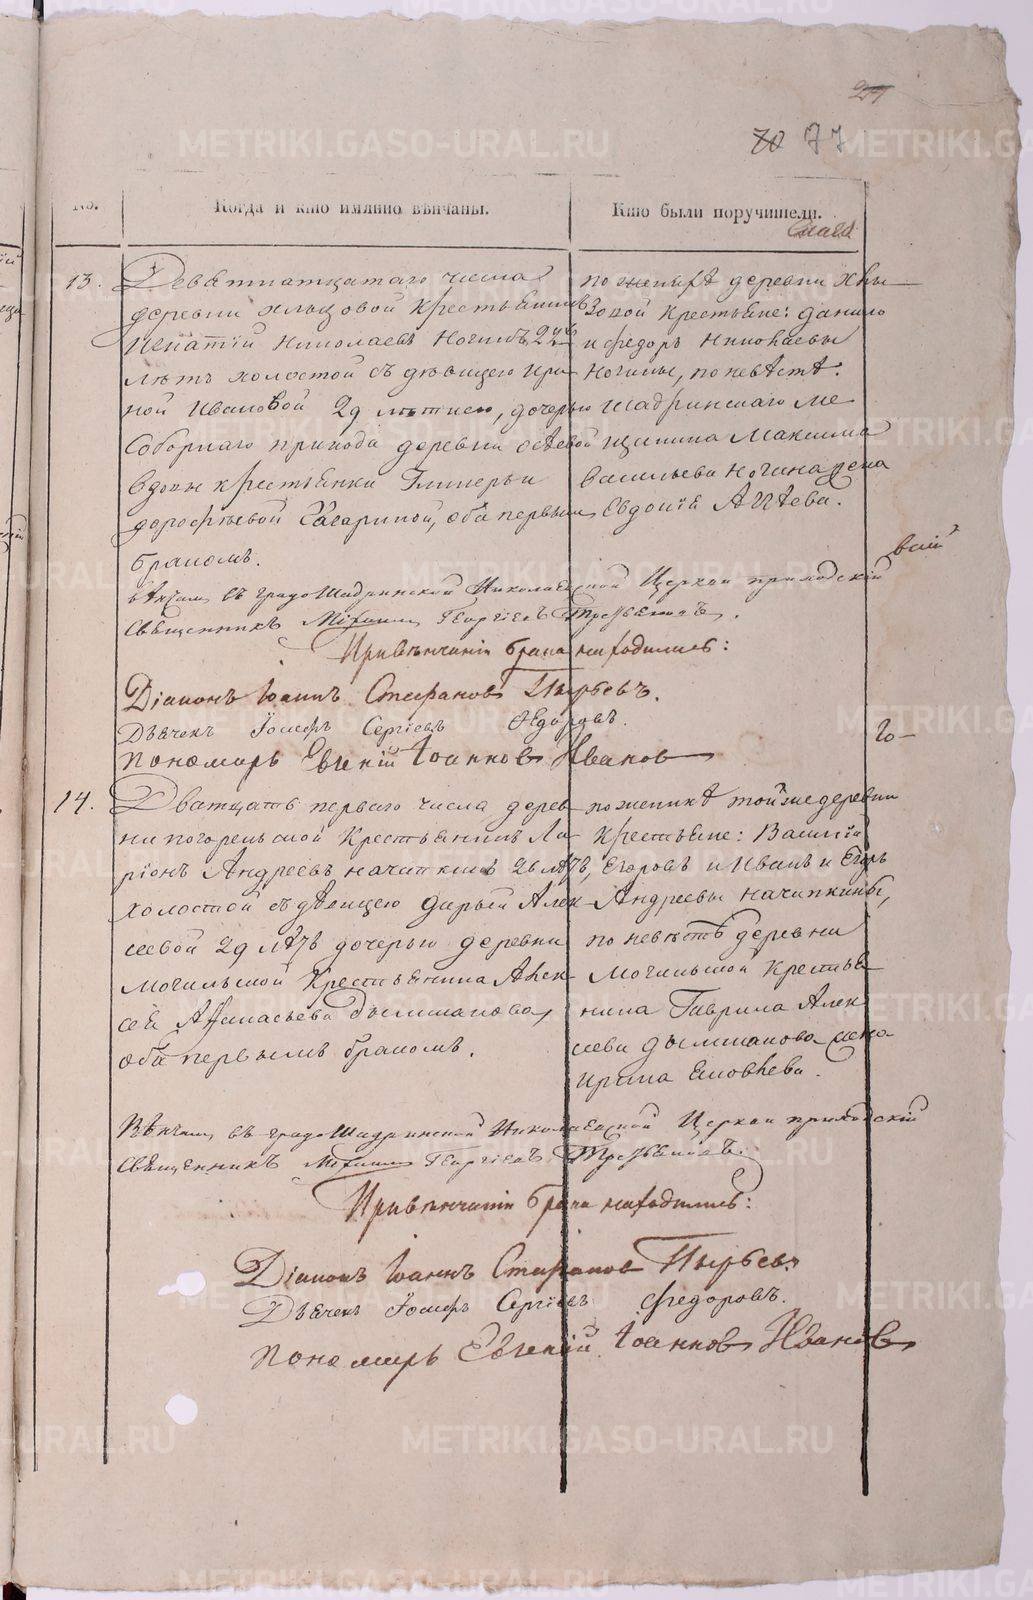 27
70 77
METRIKI.GASO-URAL.RU
No. Когда и кто имянно вѣнчаны. Кто были поручители.
13. Девятнатцатаго числа
деревни крестьянинъ
Игнатій Николаевъ Ногинъ 29
лѣтъ холостой съ дѣвицею Ири
ной Ивановой 29 лѣтнею, дочерью
Соборнаго прихода деревни
вдовы крестьянки Гликерьи
дорофѣевой оба первымъ
бракомъ.
по женихѣ деревни
крестьяне: данило
и федоръ Николаевы
Ногины, по невѣстѣ:
шадринскаго ме
щанина Максима
Васильева Ногина жена
Евдокія
вѣнчалъ въ градо Шадринской Николаевской Церкви приходскій
священникъ Михаилъ Георгіевъ
При вѣнчаніи брака находились:
Діаконъ Іоаннъ Стефановъ Пырьевъ.
Дьячекъ Іосифъ Сергіевъ Федоровъ.
Пономарь Евгеній Іоанновъ Ивановъ
14. Дватцать перваго числа дерев
ни погорельской Крестьянинъ Ла
ріонъ Андреевъ начапкинъ 26 лѣтъ,
холостой съ дѣвицею дарьей Алек
сеевой 29 лѣтъ дочерью деревни
могильской Крестьянина Алек
сея Афанасьева
оба первымъ бракомъ.
по женихѣ той же деревни
крестьяне: Василій
Егоровъ и Иванъ и Егоръ
Андреевы начапкины,
по невѣстѣ деревни
могильской крестья
нина Гаврила Алек
сеева жена
Ирина Яковлева.
Вѣнчалъ въ градо Шадринской Николаевской Церкви приходскій
священникъ Михаилъ Георгіевъ
При вѣнчаніи брака находились:
Діаконъ Іоаннъ Стефановъ Пырьевъ
Дьячекъ Іосифъ Сергіевъ Федоровъ.
Пономарь Евгеній Іоанновъ Ивановъ